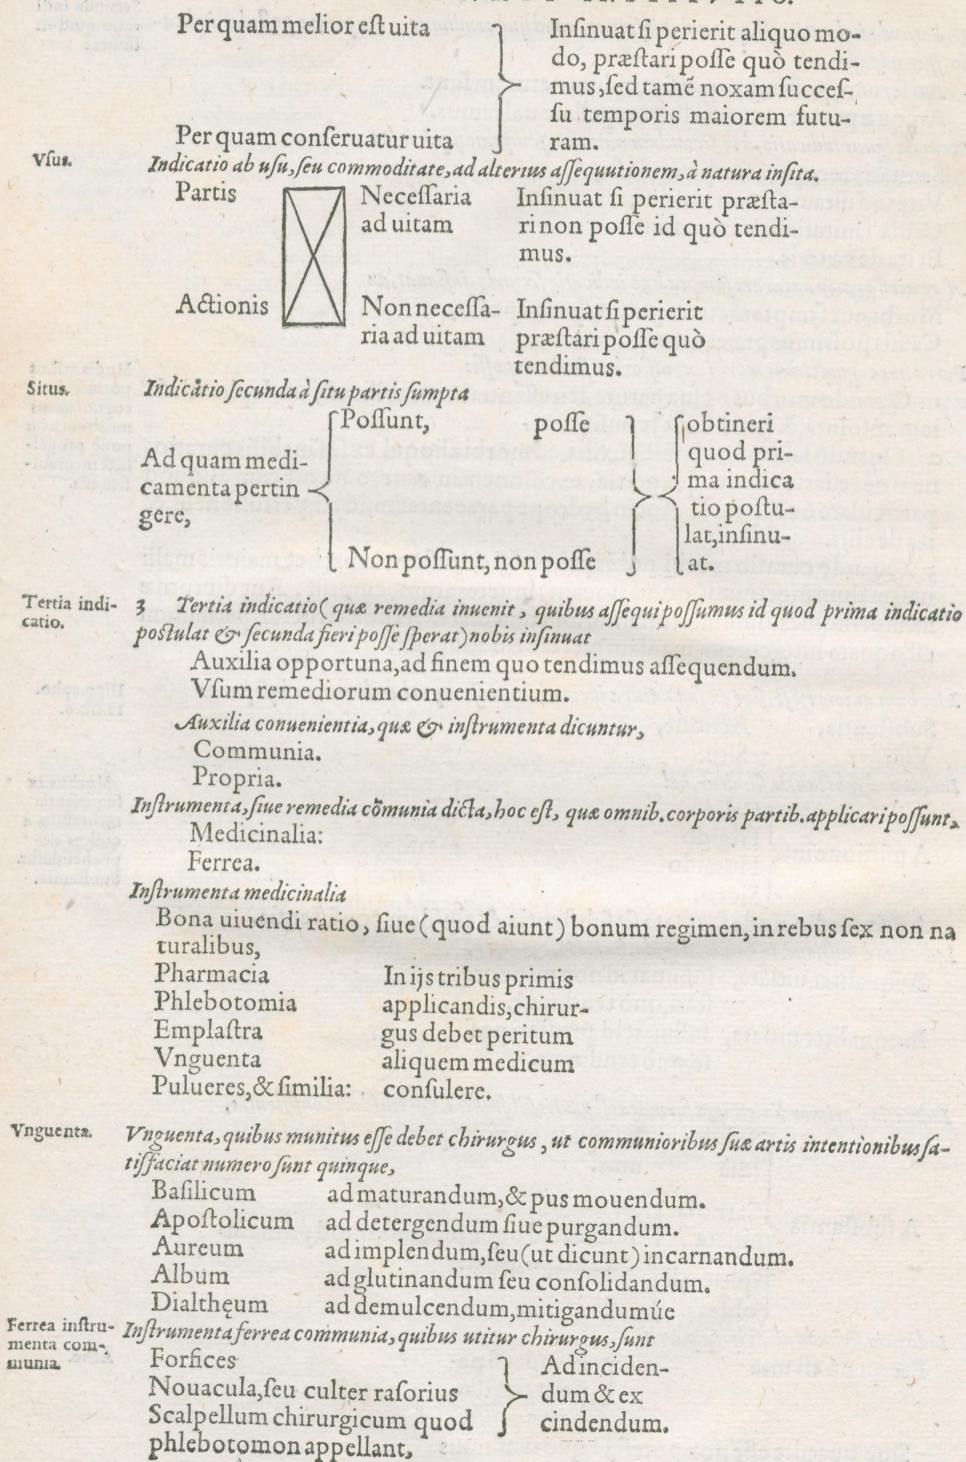 Per quam melior eſt uita
Per quam conſeruatur uita
Inſinuat ſi perierit aliquo mo-
do, præſtari poſſe quò tendi-
mus, ſed tamẽ noxam ſucceſ-
ſu temporis maiorem futu-
ram.
Vſus.
Indicatio ab uſu, ſeu commoditate, ad alterius aſſequutionem, à natura inſita.
Partis
Actionis
Neceſſaria
ad uitam
Inſinuat ſi perierit præſta-
ri non poſſe id quò tendi-
mus.
Non neceſſa-
ria ad uitam
Inſinuat ſi perierit
præſtari poſſe quò
tendimus.
Situs.
Indicatio ſecunda à ſitu partis ſumpta
Ad quam medi-
camenta pertin
gere,
Poſſunt, poſſe
Non poſſunt, non poſſe
obtineri
quod pri-
ma indica
tio poſtu-
lat, inſinu-
at.
Tertia indi-
catio.
3 Tertia indicatio (quæ remedia inuenit, quibus aſſequi poſſumus id quod prima indicatio
poſtulat & ſecunda fieri poſſe ſperat) nobis inſinuat
Auxilia opportuna, ad finem quo tendimus aſſequendum.
Vſum remediorum conuenientium.
Auxilia conuenientia, quæ & inſtrumenta dicuntur,
Communia.
Propria.
Inſtrumenta, ſiue remedia cõmunia dicta, hoc eſt, quæ omnib. corporis partib. applicari poſſunt,
Medicinalia:
Ferrea.
Inſtrumenta medicinalia
Bona uiuendi ratio, ſiue (quod aiunt) bonum regimen, in rebus ſex non na
turalibus,
Pharmacia
Phlebotomia
Emplaſtra
Vnguenta
Pulueres, & ſimilia:
In ijs tribus primis
applicandis, chirur-
gus debet peritum
aliquem medicum
conſulere.
Vnguenta.
Vnguenta, quibus munitus eſſe debet chirurgus, ut communioribus ſuæ artis intentionibus ſa-
tiſfaciat numero ſunt quinque,
Baſilicum ad maturandum, & pus mouendum.
Apoſtolicum ad detergendum ſiue purgandum.
Aureum ad implendum, ſeu (ut dicunt) incarnandum.
Album ad glutinandum ſeu conſolidandum.
Dialthęum ad demulcendum, mitigandumúe
Ferrea inſtru-
menta com-
munia.
Inſtrumenta ferrea communia, quibus utitur chirurgus, ſunt
Forfices
Nouacula, ſeu culter raſorius
Scalpellum chirurgicum quod
phlebotomon appellant,
Ad inciden-
dum & ex
cindendum.